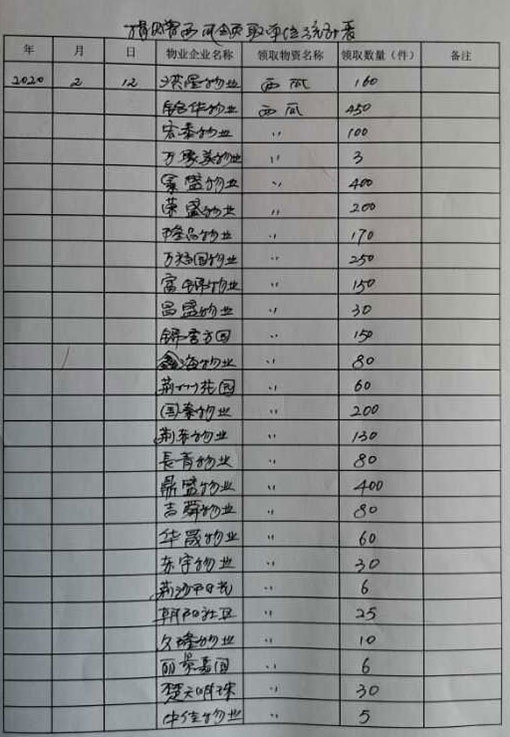 捐赠西瓜领取单位统计表
年 月 日 物业企业名称 领取物资名称 领取数量（件） 备注
2020 2 12 洪屋物业 西瓜 160
铭华物业 西瓜 450
宏泰物业 〃 100
万家美物业 〃 3
景盛物业 〃 400
荣盛物业 〃 200
隆昌物业 〃 170
万福园物业 〃 250
富锦物业 〃 150
昌盛物业 〃 30
锦秀方园 〃 150
鑫海物业 〃 80
荆州花园 〃 60
国泰物业 〃 200
荆东物业 〃 130
長青物业 〃 80
鼎盛物业 〃 400
吉舜物业 〃 80
华晟物业 〃 60
东宇物业 〃 30
荆沙阳光 〃 6
朝阳社区 〃 25
久隆物业 〃 10
丽景嘉园 〃 6
楚天明珠 〃 30
中佳物业 〃 5